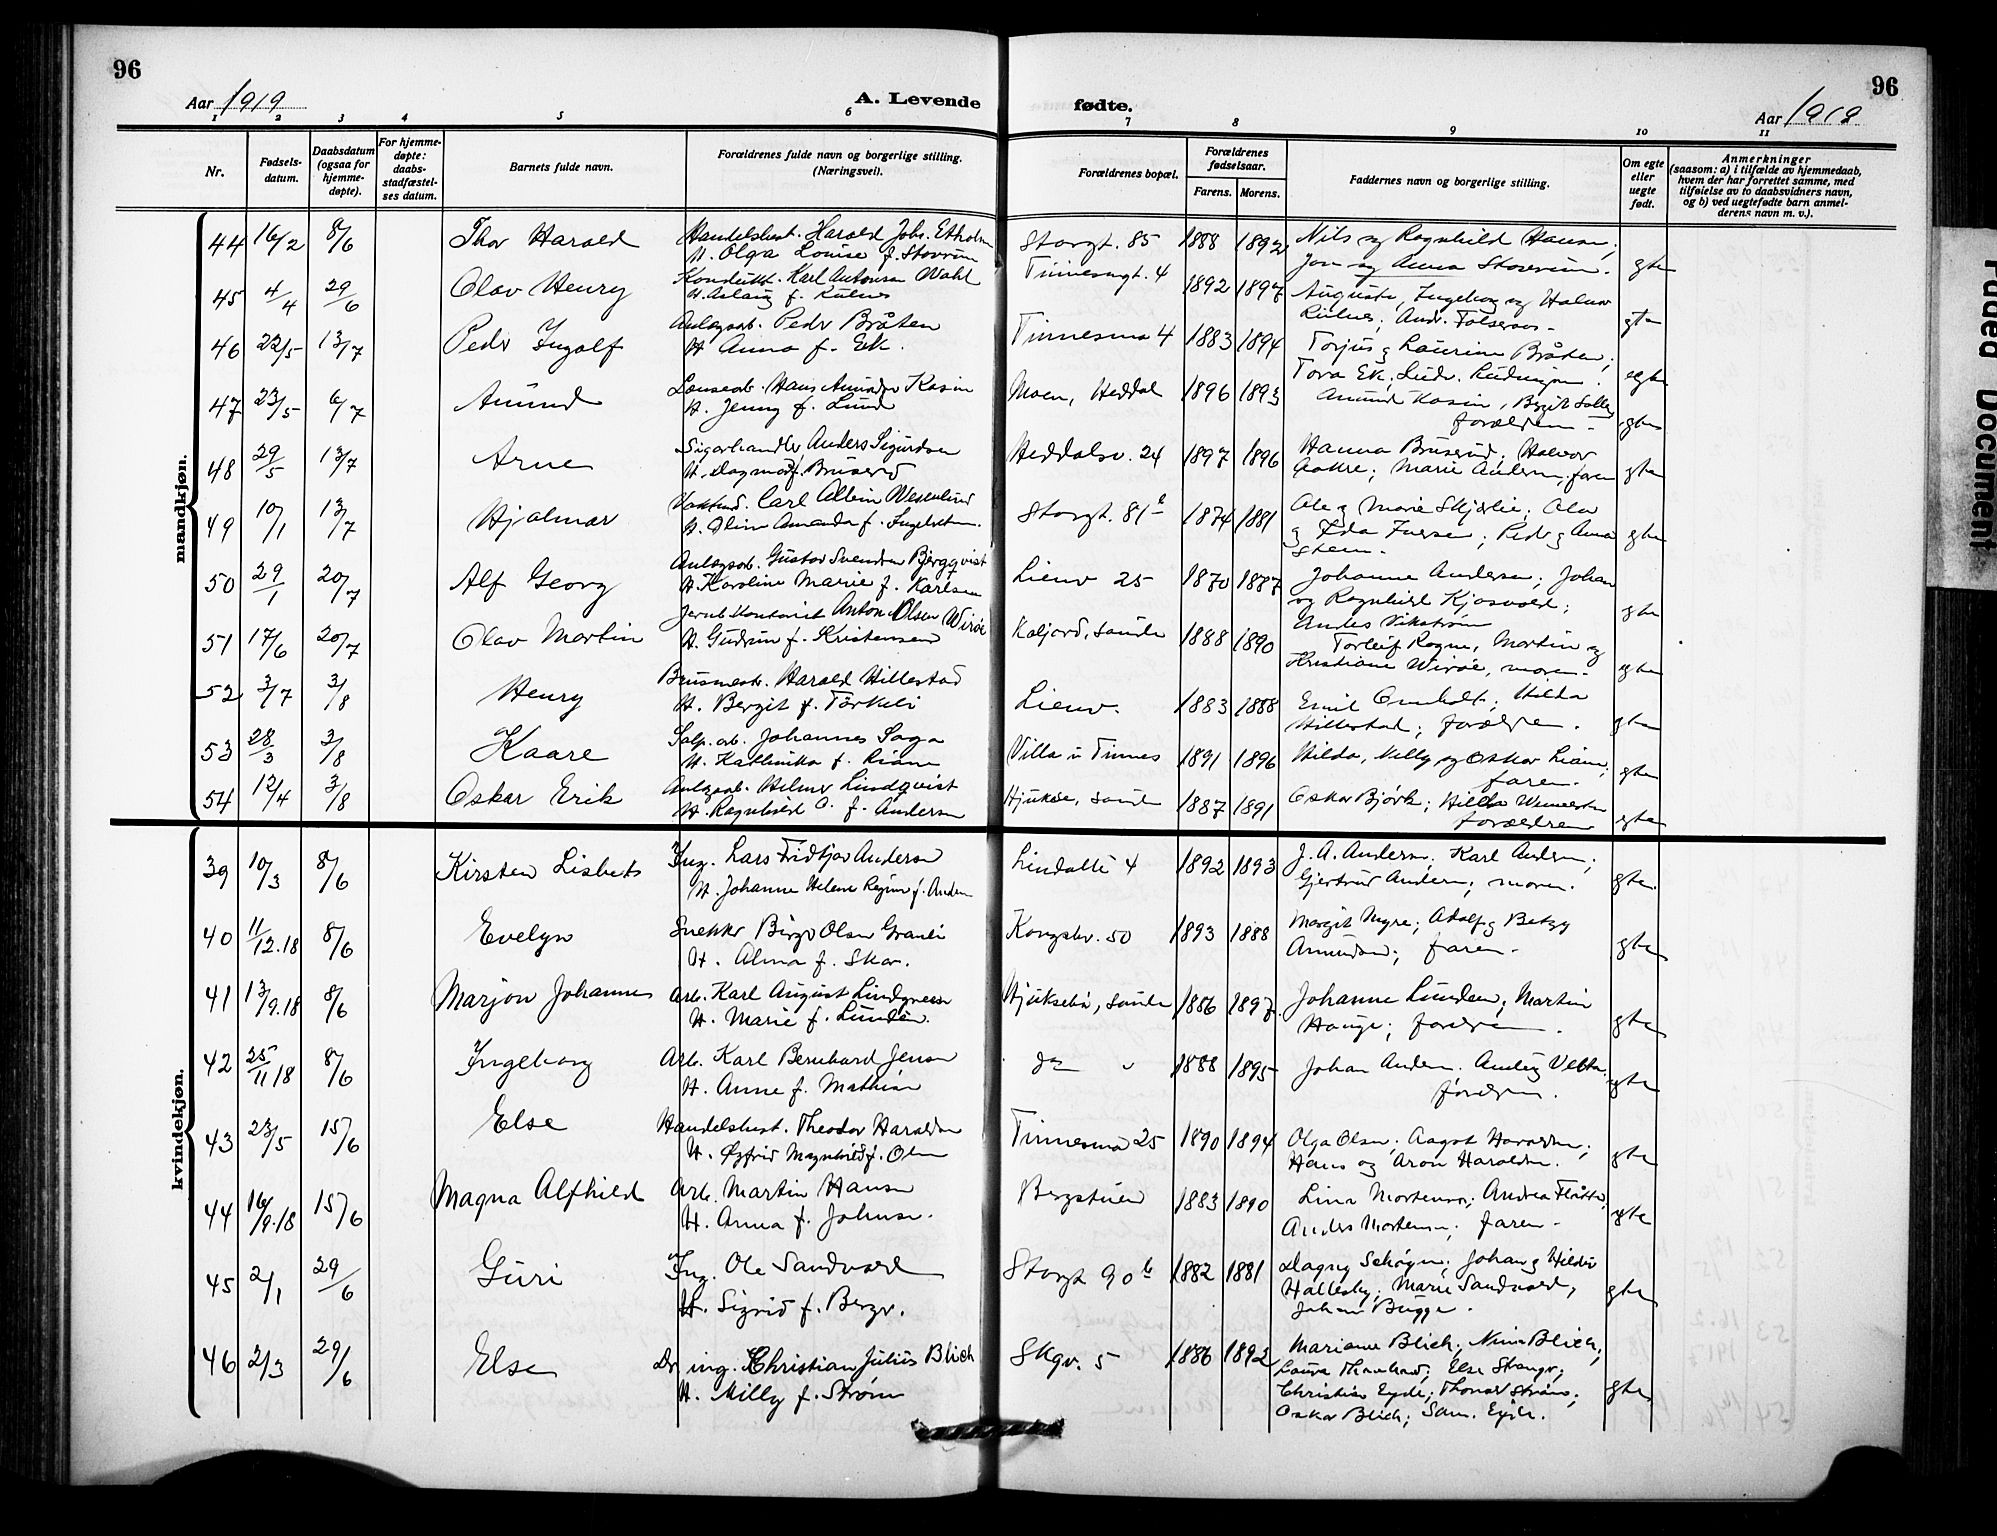 96
96
Aar 1919
A. Levende
fødte.
Aar 1919
1 2 3 4 5 6 7 8 9 10 11
Nr.
Fødselsdatum.
Daabsdatum (ogsaa for hjemmedøpte).
For hjemmedøpte: daabsstadfæstelses datum.
Barnets fulde navn.
Forældrenes fulde navn og borgerlige stilling. (Næringsvei).
Forældrenes bopæl.
Forældrenes fødselsaar.
Farens.
Morens.
Faddernes navn og borgerlige stilling.
Om egte eller uegte født.
Anmerkninger
(saasom: a) i tilfælde av hjemmedaab, hvem der har forrettet samme, med tilføielse av to daabsvidners navn, og b) ved uegtefødte barn anmelderens navn m. v.).
mandkjøn.
44 16/2 8/6 Thor Harald Handelsbest. Harald Johs. Etholm Storgt. 85 1888 1892 Nils og Ragnhild Hansen;
H. Olga Louise f. Stovrum Jon og Anna Stovrum. egte
45 4/4 29/6 Olav Henry Kondukt. Karl Antonsen Wahl Tinnesmgt. 4 1892 1897 Augusta, Ingeborg og Halvor
H. Aslaug f. Kulnes egte
46 22/5 13/7 Peder Ingolf Anlægsarb. Peder Bråten Tinnesmo 4 1883 1894 Torjus og Laurine Bråten;
H. Anna f. Ek. Tora Ek; egte
47 23/5 6/7 Amund Hans Amundsen Kasin Moen, Heddal 1896 1893 Amund Kasin,
H. Jenny f. Lund forældrene egte
48 29/5 13/7 Arne Sigarhandler Anders Sigurdsen Heddalsv. 24 1897 1896 Hanna Bruserud; Halvor
H. Dagmar f. Bruserud Marie Andersen; faren egte
49 10/1 13/7 Hjalmar Carl Albin Westerlund Storgt. 81 b 1874 1881 Ole og Marie Skjerlie; Olav
H. Amanda f. Ingebretsen. og Ida Iversen; Peder og Anna
Steen. egte
50 29/1 20/7 Alf Georg Anlægsarb. Gustav Svendsen Bergqvist Lienv 25 1870 1887 Johanne Andersen; Johan
H. Karoline Marie f. Karlsen og Ragnhild Kjosvold;
Anders Vikstrøm egte
51 17/6 20/7 Olav Martin Anton Olsen Wirøe Kaljord, Saude 1888 1890 Torleif Rogne, Martin og
H. Gudrun f. Kristensen Kristiane Wirøe, moren. egte
52 3/7 3/8 Henry Harald Hillestad Lienv. 1883 1888 Emil Omholt; Hilda
H. Bergit f. Torkeli Hillestad; forældrene. egte
53 28/3 3/8 Kaare Salp. arb. Johannes Saga Villa i Tinnes 1891 1896 Hilda, Nelly og Oskar Liane;
H. Kathinka f. Liane faren. egte
54 12/4 3/8 Oskar Erik Anlægsarb. Helmer Lindqvist Hjuksæ, Saude 1887 1891 Oskar Bjørk; Hilda
H. Ragnhild O. f. Andersen forældrene egte
kvindekjøn.
39 10/3 8/6 Kirsten Lisbeth Ing. Lars Fridtjov Andersen Lindalle 4 1892 1893 J. A. Andersen, Karl Andersen;
H. Johanne Helene f. Andersen Gjertrud Andersen; moren. egte.
40 11/12.18 8/6 Evelyn Snekker Birger Olsen Granli Kongsbv. 50 1893 1888 Margit Myre; Adolf og Betzy
H. Alma f. Skar. Amundsen; faren. egte
41 13/9.18 8/6 Marjon Johanne Arb. Karl August Lindgreen Hjuksebø, Saude 1886 1897 Johanne Lunden; Martin
H. Marie f. Lunden. Hauge; foreldrene. egte
42 25/11 18 8/6 Ingeborg Arb. Karl Bernhard Jensen do " 1888 1895 Johan Andersen.
H. Anne f. Mathisen foreldrene. egte
43 23/5 15/6 Else Handelsbest. Theodor Haraldsen Tinnesmo 25 1890 1894 Olga Olsen; Aagot Haraldsen;
H. Øgfrid Magnhild f. Olsen Hans og Aron Haraldsen. egte
44 16/9.18 15/6 Magna Alfhild Arb. Martin Hansen Bergstuen 1883 1890 Lina Mortensen; Andrea
H. Anna f. Johnsen. Anders Mortensen; faren. egte
45 2/1 29/6 Guri Ing. Ole Sandvold Storgt 90 b 1882 1881 Dagny Schøyen; Johan og Hildur
H. Sigrid f. Berge. Hallesby; Marie Sandvold,
Johan Bugge. egte
46 2/3 29/6 Else Dr ing. Christian Julius Blich Skgv. 5 1886 1892 Marianne Blich; Nina Blich;
H. Milly f. Strøm Laura; Else;
Christian Eyde; Thomas Strøm;
Oskar Blich; Sam. Eyde. egte
Faded Document